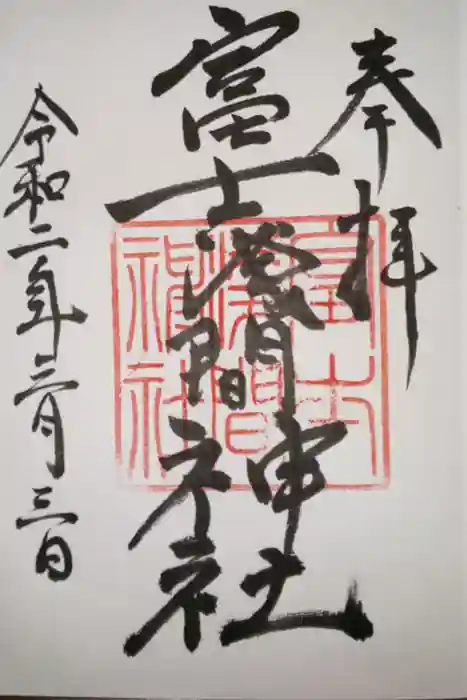 奉拝
富士浅間神社
令和二年三月三日
富士
浅間
神社